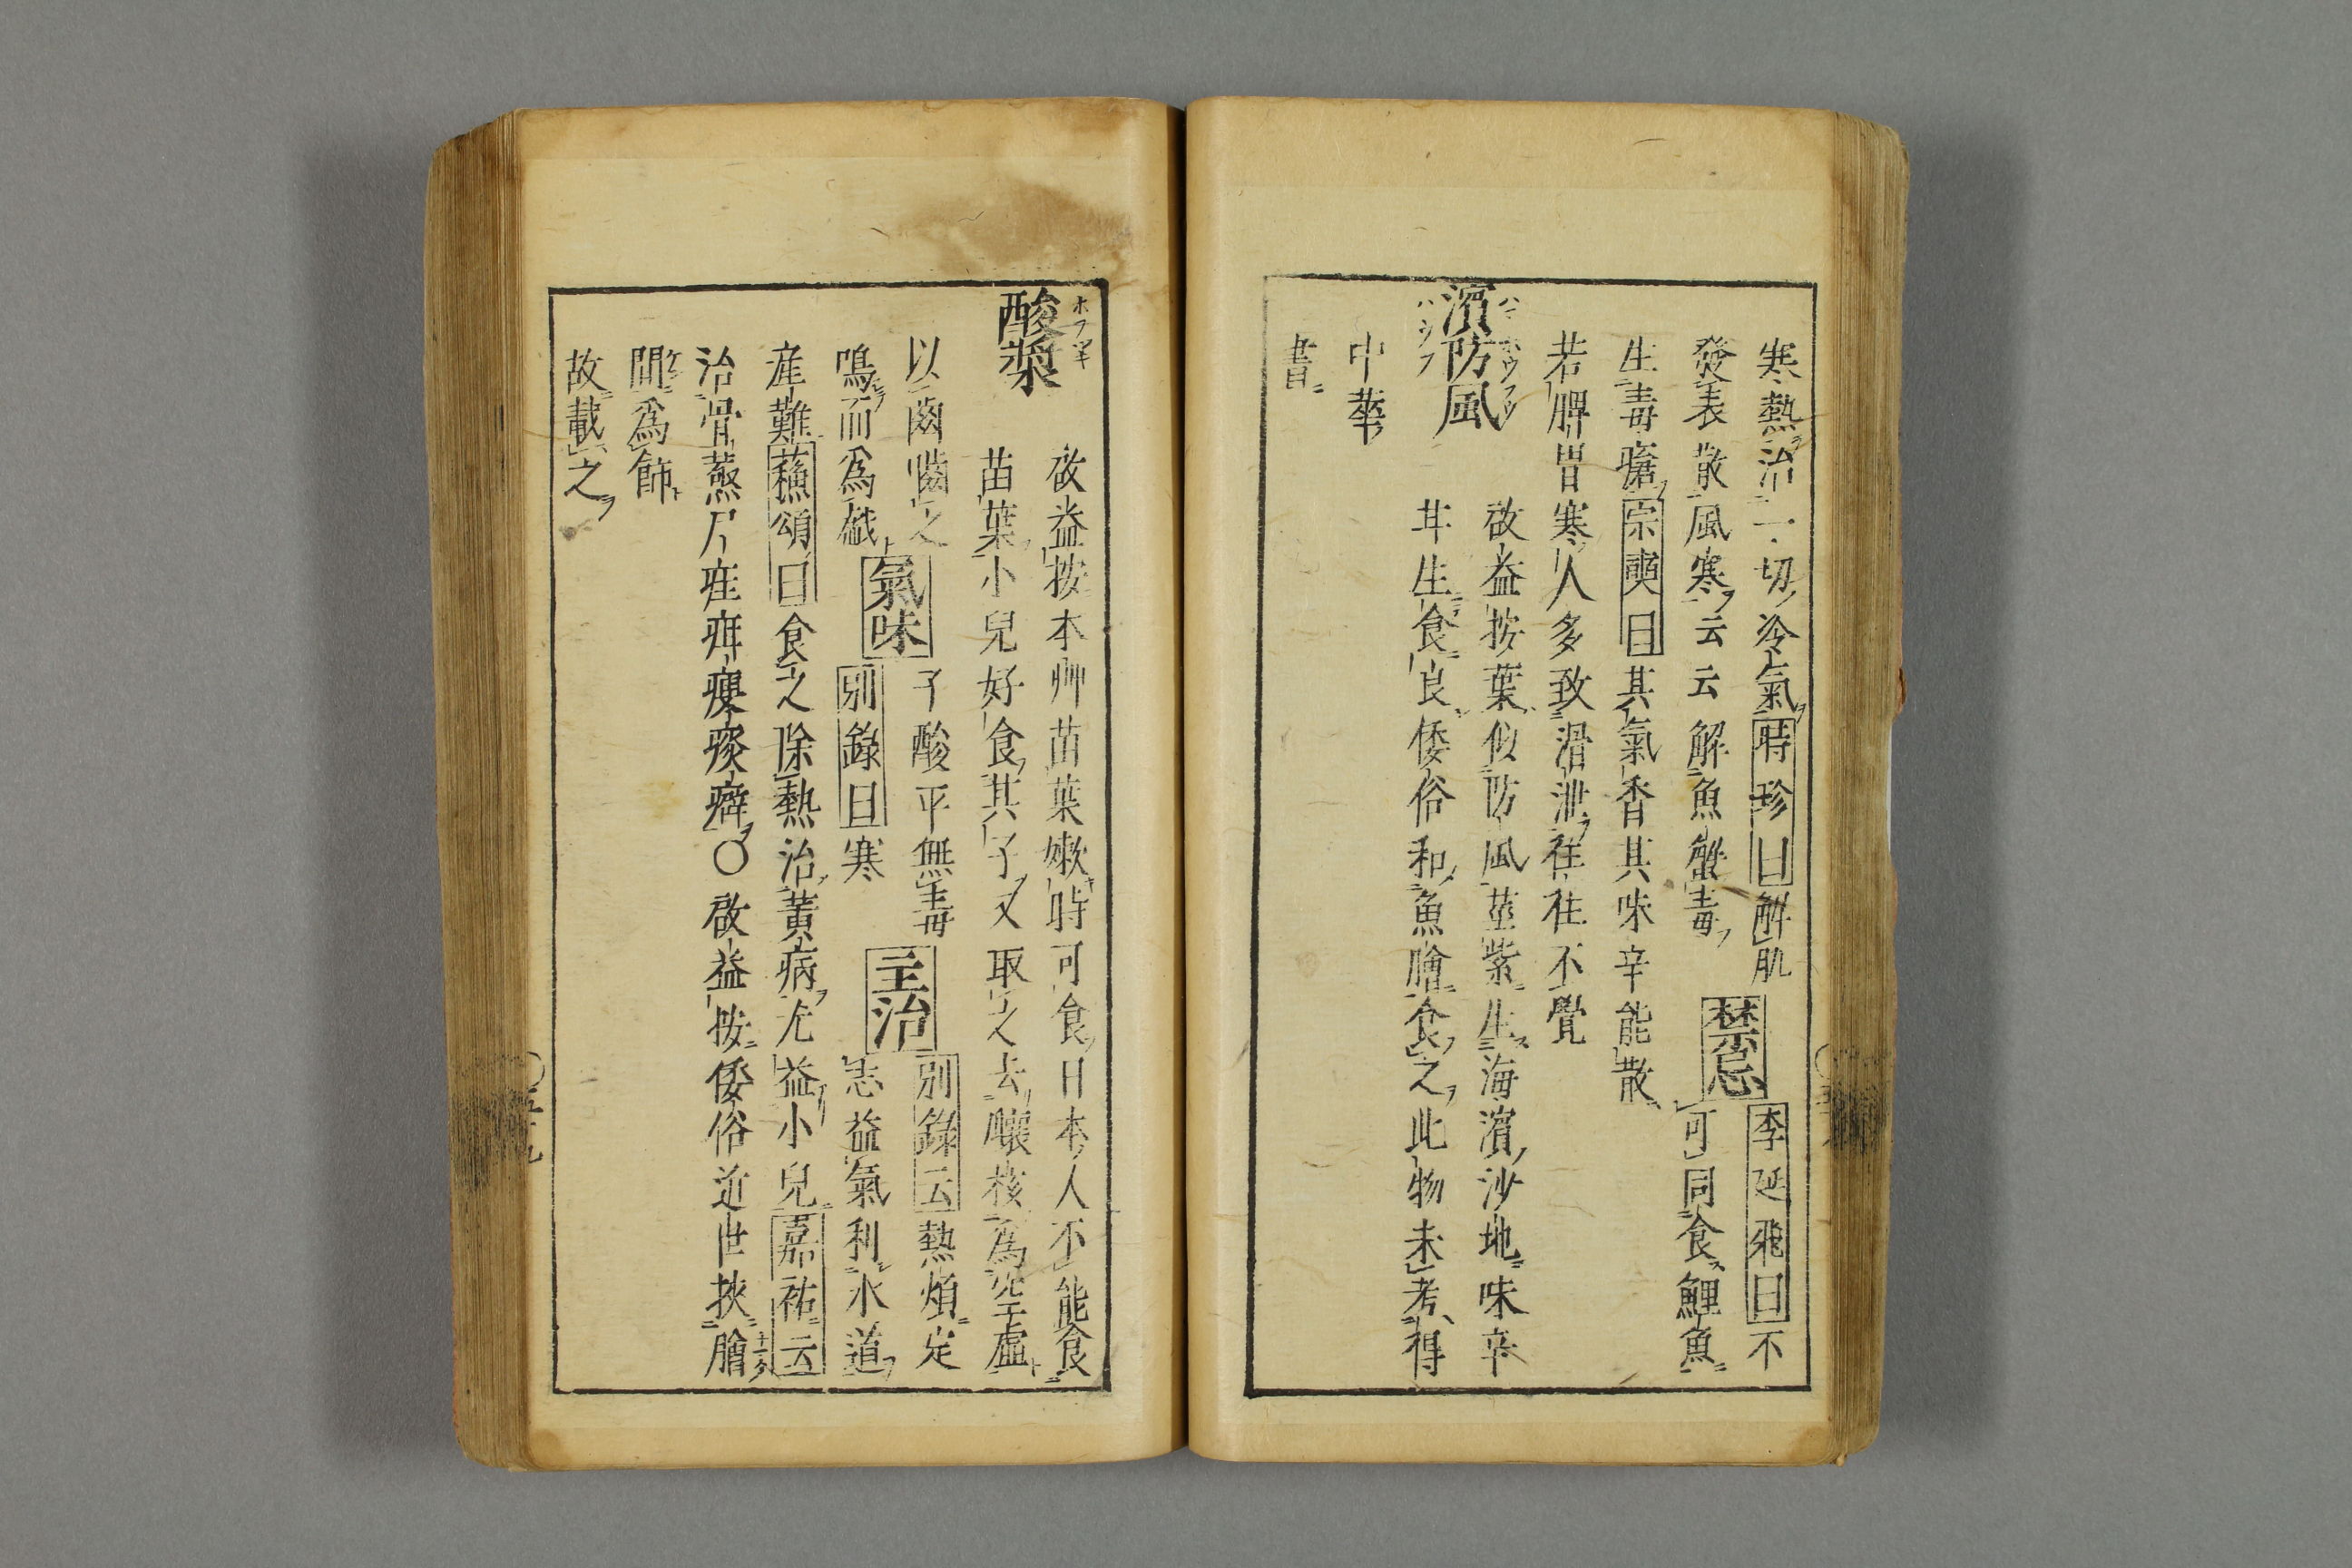 寒熱治一切冷氣時珍曰解肌
禁忌
李延飛曰不
發表散風寒云云解魚蟹毒
可同食鯉魚
生毒瘡宗奭曰其氣香其味辛能散
若脾胃寒人多致滑泄往往不覺
ハマホウフウ
濱防風
啟益按葉似防風莖紫生海濱沙地味辛
甘生食良倭俗和魚膾食之此物未考得
中華
書
ホフツキ
酸漿
啟益按本艸苗葉嫩時可食日本人不能食
苗葉小兒好食其子又取之去釀核為空虛
以齒嚙之
鳴而為戲
氣味
子酸平無毒
別錄曰寒
主治
別錄云熱煩定
志益氣利水道
產難蘓頌曰食之除熱治黃病尤益小兒嘉祐云
治骨蒸尸疰疳瘦痰癖〇啟益按倭俗近世挾膾
間為飾
故載之